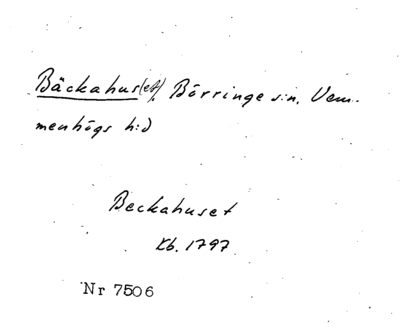 Bäckahus(et), Börringe s:n, Vem-
menhögs h:d
Beckahuset
Kb. 1797
Nr 7506